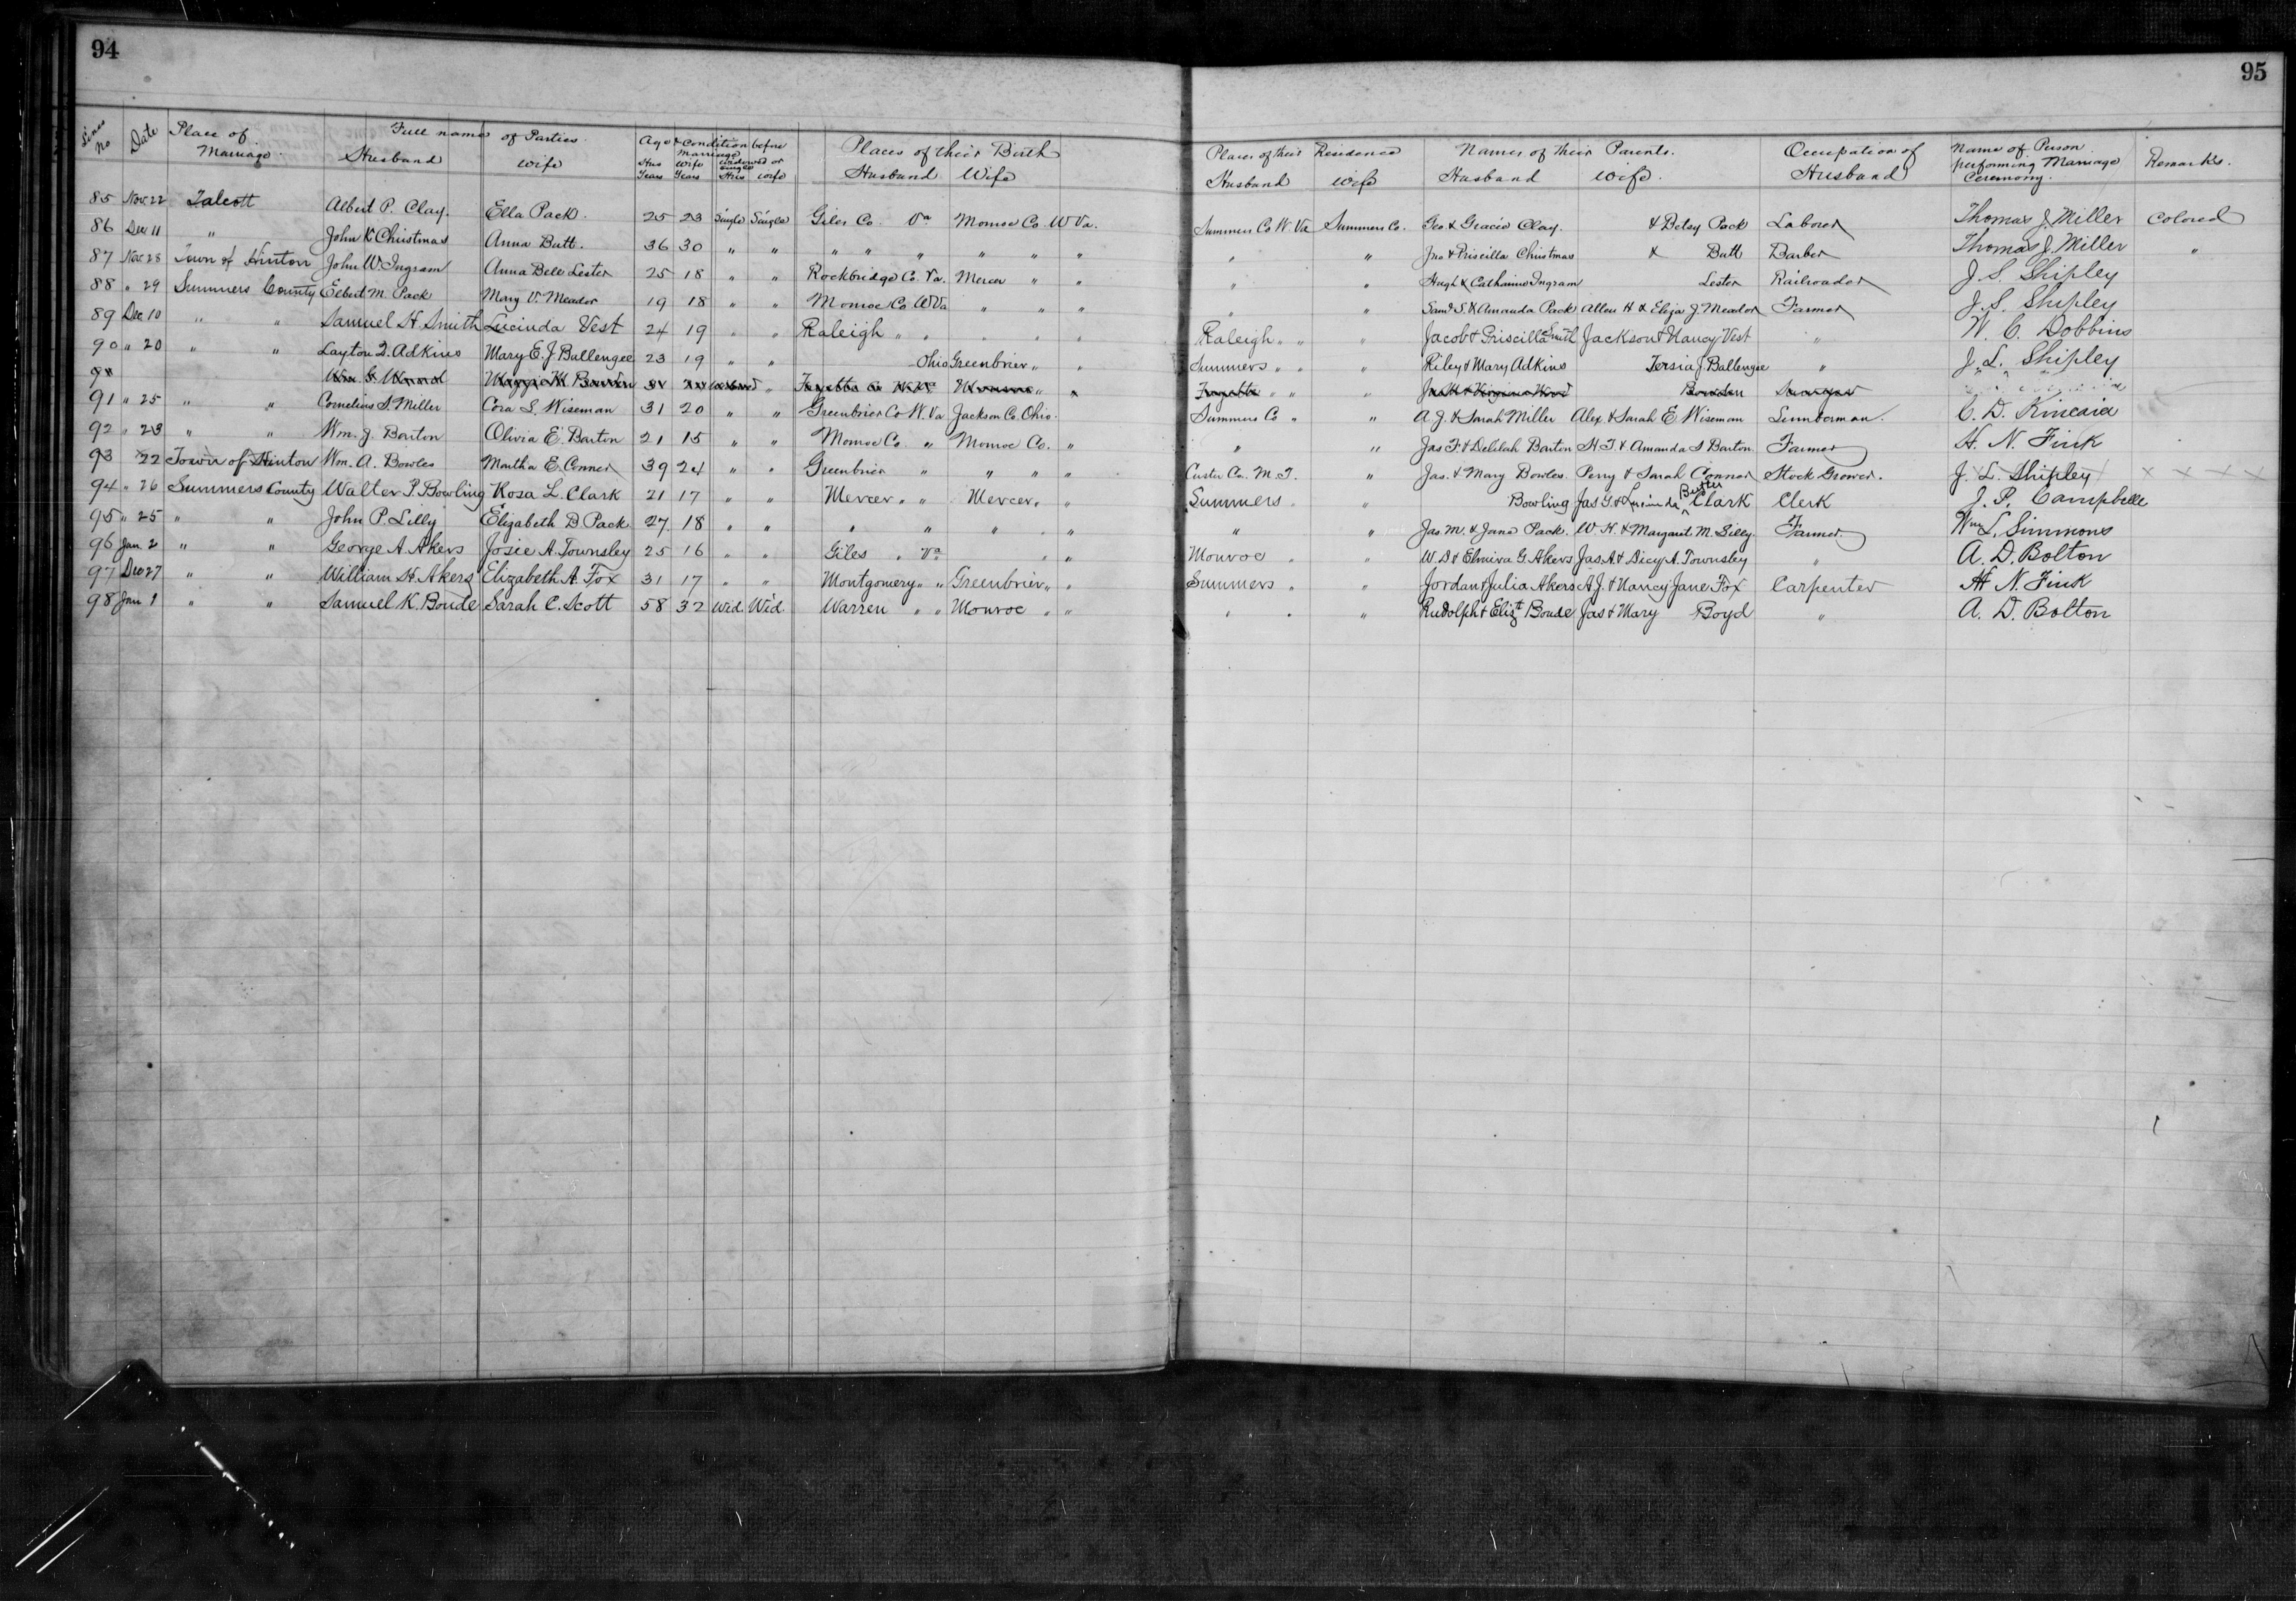 94
95
Lines No Date Place of Marriage Full names of Parties Husband Wife Age & Condition before Marriage Hus Years Wife Years widowed or single Hus wife Places of their Birth Husband Wife Places of their Residence Husband Wife Names of their Parents. Husband Wife. Occupation of Husband Name of Person performing Marriage Ceremony. Remarks.
85 Nov 22 Talcott Albert P. Clay. Ella Pack. 25 23 Single Single Giles Co. Va Monroe Co. W Va. Summers Co W. Va Summers Co. Geo. & Gracie Clay. & Betsy Pack Laborer Thomas J. Miller Colored
86 Dec 11 " John K Christmas Anna Butt. 36 30 " " " " " " " " " " Jno & Priscilla Christmas & Butt Barber Thomas J. Miller "
87 Nov 28 Town of Hinton John W. Ingram Anna Bell Lester 25 18 " " Rockbridge Co. Va. Mercer " " " " Hugh & Catharine Ingram Lester Railroader J. S. Shipley
88 " 29 Summers County Elbert M. Pack Mary V. Meador 19 18 " " Monroe Co. W Va " " " " " Saml S. & Amanda Pack Allen H & Eliza J. Meador Farmer J. S. Shipley
89 Dec 10 " " Samuel H Smith Lucinda Vest 24 19 " " Raleigh " " " " " Raleigh " " " Jacob & Griscilla Smith Jackson & Nancy Vest " W. C. Dobbins
90 " 20 " " Layton Q. Adkins Mary E. J Ballengee 23 19 " " Ohio Greenbrier " " Summers " " " Riley & Mary Adkins Tersia J. Ballengee " J. L. Shipley
Wm. G. Maggie M Bowden Fayette Co W. Va Fayette " " " Bowden
91 " 25 " " Cornelius S. Miller Cora S. Wiseman 31 20 " " Greenbrier Co W. Va Jackson Co. Ohio. Summers Co " " A. J. & Sarah Miller Alex & Sarah E. Wiseman Lumberman. C. D. Kincaid
92 " 23 " " Wm. J. Barton Olivia E. Barton 21 15 " " Monroe Co. " Monroe Co. " " " Jas F. & Delilah Barton H. T. & Amanda S Barton. Farmer H. N. Fink
93 22 Town of Hinton Wm. A. Bowles Martha E. Conner 39 24 " " Greenbrier " " " " Custer Co. M. T. " Jas. & Mary Bowles. Perry & Sarah Connor Stock Grower. J. L. Shipley x x x x
94 " 26 Summers County Walter P. Bowling Rosa L. Clark 21 17 " " Mercer " " Mercer " " Summers " " Bowling Jas G. & Lucinda Butler Clark Clerk J. P. Campbelle
95 " 25 " " John P. Lilly Elizabeth D. Pack 27 18 " " " " " " " " " Jas. M. & Jane Pack. W. H. & Margaret M. Lilly. Farmer. Wm L. Simmons
96 Jan 2 " " George A. Akers Josie A. Townsley 25 16 " " Giles " Va " " Monroe " " W. D. & Elmira G. Akers Jas. A & Dicy A. Townsley " A. D. Bolton
97 Dec 27 " " William H. Akers Elizabeth A. Fox 31 17 " " Montgomery " " Greenbrier " " Summers " " Jordan & Julia Akers A. J. & Nancy Jane Fox Carpenter H. N. Fink
98 Jan 1 " " Samuel K. Boude Sarah C. Scott 58 32 Wid. Wid. Warren " " Monroe " " " " " Rudolph & Elizt Boude Jas & Mary Boyd " A. D. Bolton